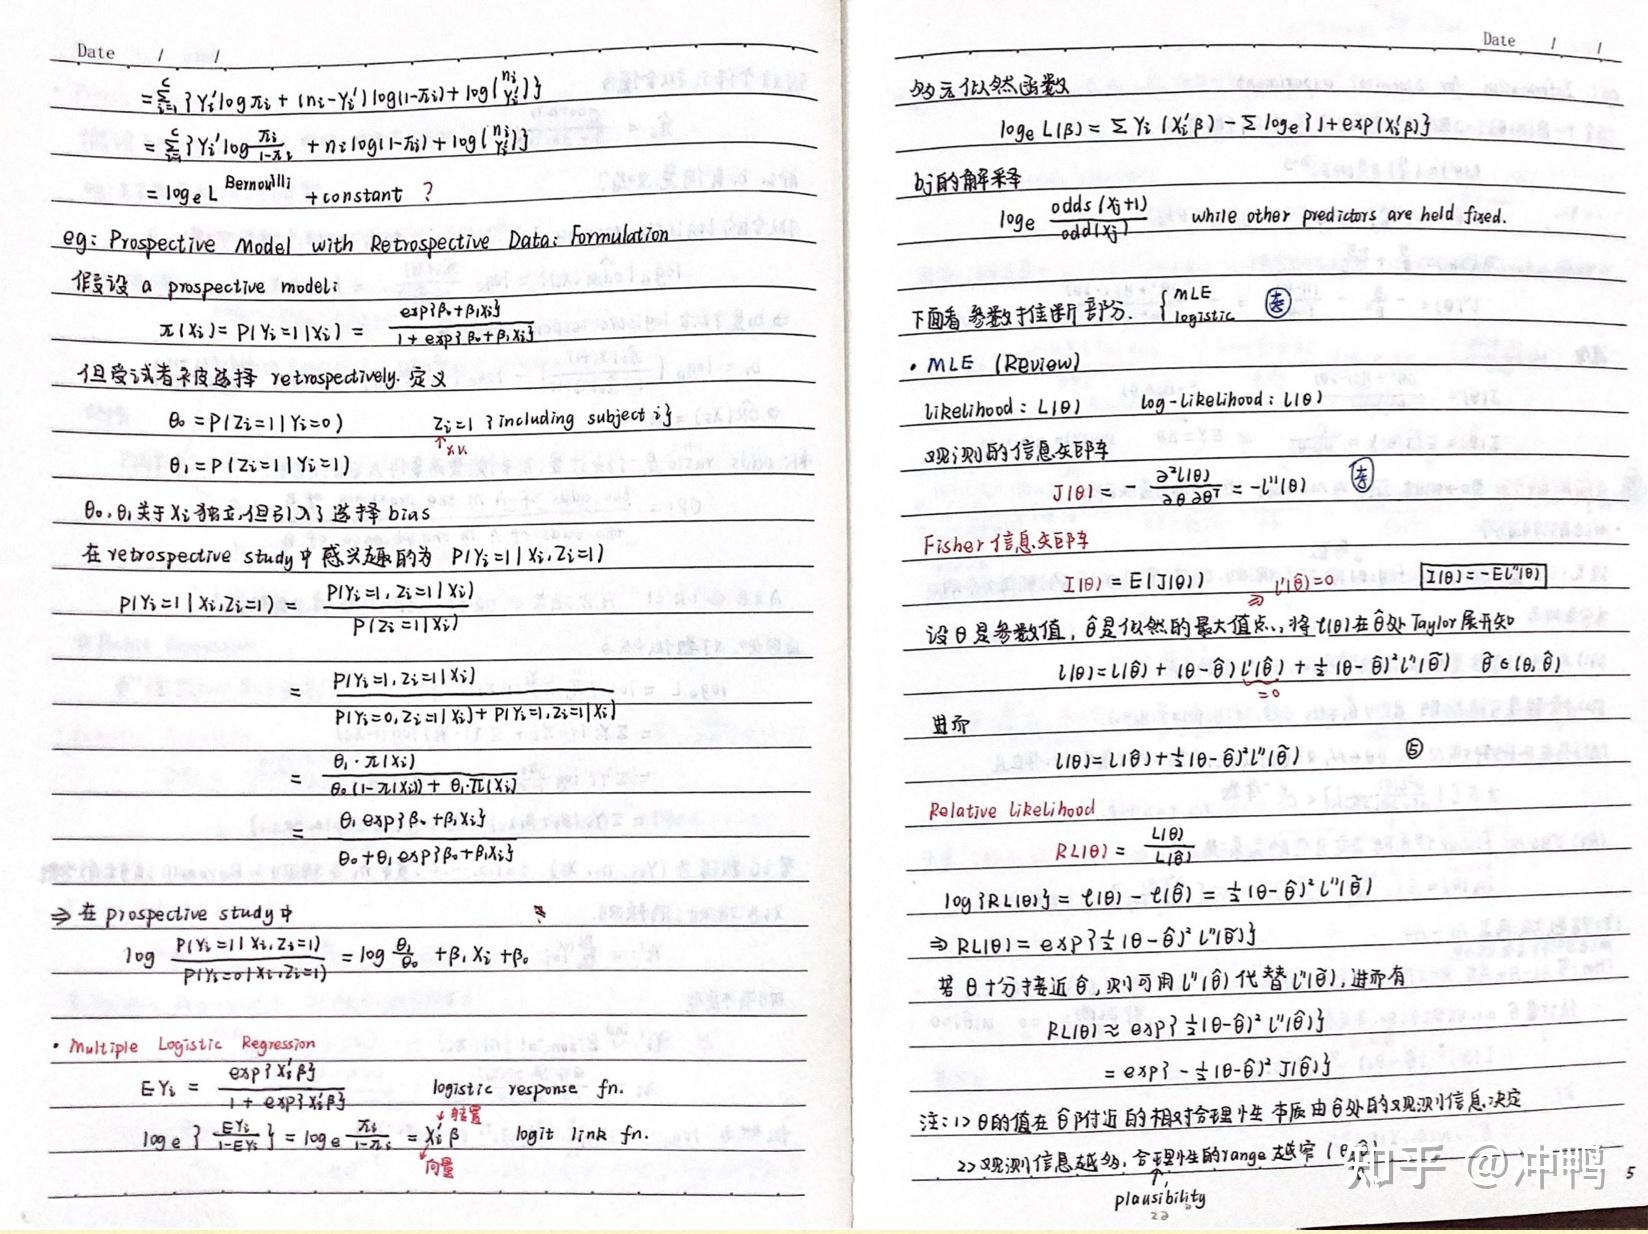 Date / /
= Σ_{i=1}^{c} {Yi' log πi + (ni - Yi') log(1-πi) + log(ni Yi')}
= Σ_{i=1}^{c} {Yi' log πi/(1-πi) + ni log(1-πi) + log(ni Yi')}
= loge L^Bernoulli + constant ?
eg: Prospective Model with Retrospective Data: Formulation
假设 a prospective model:
π(Xi) = P(Yi=1|Xi) = exp{β0+β1Xi} / (1+exp{β0+β1Xi})
但受试者未被选择 retrospectively. 定义
θ0 = P(Zi=1|Yi=0) Zi=1 {including subject i}
θ1 = P(Zi=1|Yi=1)
θ0,θ1关于Xi独立,但引入了选择bias
在retrospective study中感兴趣的为 P(Yi=1|Xi,Zi=1)
P(Yi=1|Xi,Zi=1) = P(Yi=1,Zi=1|Xi) / P(Zi=1|Xi)
= P(Yi=1,Zi=1|Xi) / (P(Yi=0,Zi=1|Xi)+P(Yi=1,Zi=1|Xi))
= θ1·π(Xi) / (θ0(1-π(Xi))+θ1·π(Xi))
= θ1 exp{β0+β1Xi} / (θ0+θ1 exp{β0+β1Xi})
⇒ 在prospective study中
log P(Yi=1|Xi,Zi=1)/P(Yi=0|Xi,Zi=1) = log θ1/θ0 + β1Xi + β0
• Multiple Logistic Regression
EYi = exp{Xi'β} / (1+exp{Xi'β}) logistic response fn.
转置
loge{EYi/(1-EYi)} = loge πi/(1-πi) = Xi'β logit link fn.
向量
Date / /
多元似然函数
loge L(β) = ΣYi(Xi'β) - Σloge{1+exp(Xi'β)}
bj的解释
loge odds(Xj+1)/odd(Xj) while other predictors are held fixed.
下面看参数推断部分. { MLE
logistic
• MLE (Review)
likelihood: L(θ) log-likelihood: l(θ)
观测的信息矩阵
J(θ) = - ∂²l(θ)/∂θ∂θᵀ = -l''(θ)
Fisher信息矩阵
I(θ) = E(J(θ)) I(θ)=-El''(θ)
⇒ l'(θ̂)=0
设θ是参数值, θ̂是似然的最大值点, 将l(θ)在θ̂处Taylor展开知
l(θ)=l(θ̂)+(θ-θ̂)l'(θ̂)+½(θ-θ̂)²l''(θ̃) θ̃∈(θ,θ̂)
=0
进而
l(θ)=l(θ̂)+½(θ-θ̂)²l''(θ̃) ⑤
Relative Likelihood
RL(θ) = L(θ)/L(θ̂)
log{RL(θ)} = l(θ)-l(θ̂) = ½(θ-θ̂)²l''(θ̃)
⇒ RL(θ) = exp{½(θ-θ̂)²l''(θ̃)}
若θ十分接近θ̂, 则可用l''(θ̂)代替l''(θ̃), 进而有
RL(θ) ≈ exp{½(θ-θ̂)²l''(θ̂)}
= exp{-½(θ-θ̂)²J(θ̂)}
注: 1> θ的值在θ̂附近的相对合理性本质由θ̂处的观测信息决定
2> 观测信息越多, 合理性的range越窄
plausibility
知乎 @冲鸭
5